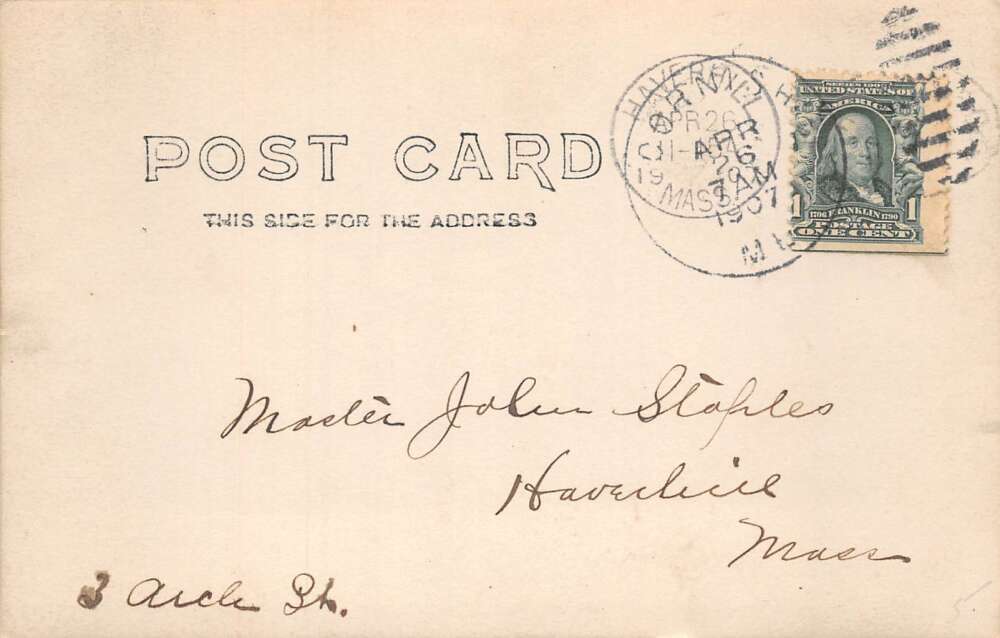 POST CARD
THIS SIDE FOR THE ADDRESS
HAVERHILL
APR 26
MASS.
APR
26
7 AM
1907
SERIES 1902
UNITED STATES OF
AMERICA
1 1706 FRANKLIN 1790 1
POSTAGE
ONE CENT
Master John Staples
Haverhill
Mass
3 Arch St.